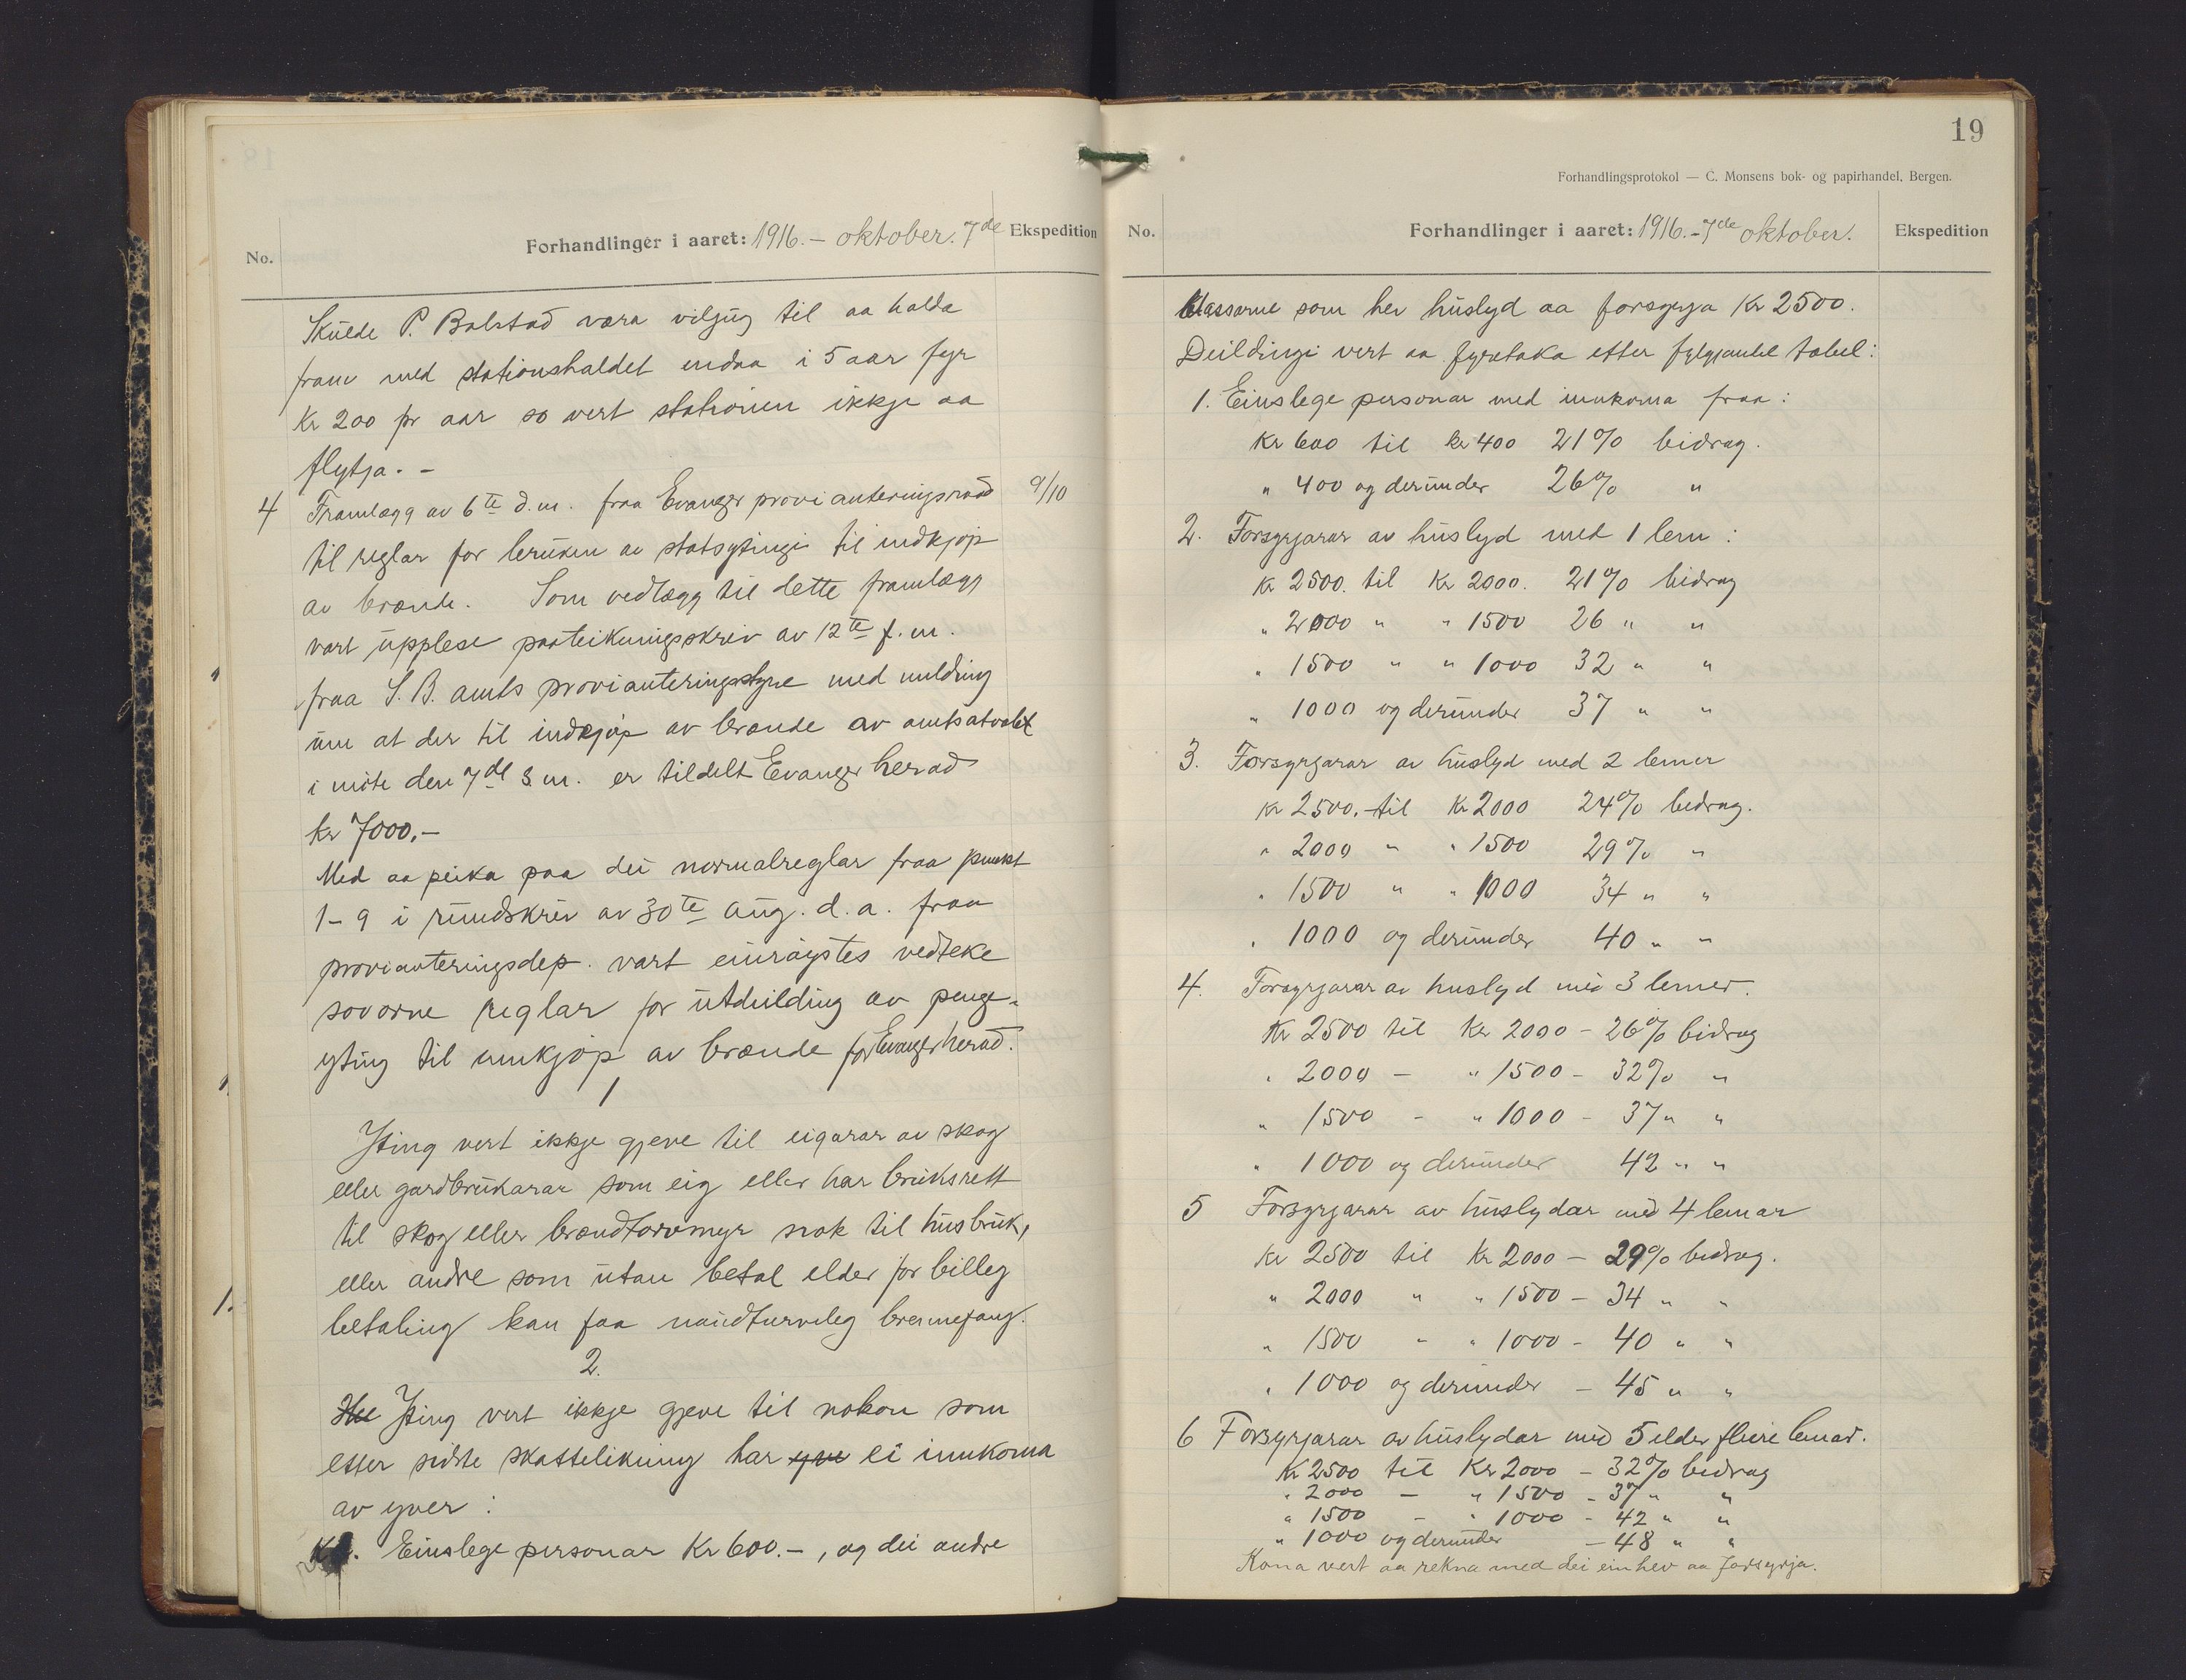 No.
Forhandlinger i aaret: 1916. – oktober. 7de
Ekspedition
Skulde P. Bolstad væra viljug til aa halda
fram med stationshaldet endaa i 5 aar fyr
Kr 200 pr aar so vert stationen ikkje aa
flytja. –
4 Framlægg av 6te d.m. fraa Evanger provianteringsraad 9/10
til reglar for bruken av statsytingi til indkjøp
av brænde. Som vedlægg til dette framlægg
vart upplese paateikningsskriv av 12te f.m.
fraa S. B. amts provianteringsstyre med melding
um at der til indkjøp av brænde av amtsutvalet
i møte den 7de s.m. er tildelt Evanger herad
kr 7000,–
Med aa peika paa dei normalreglar fraa punkt
1–9 i rundskriv av 30te aug. d.a. fraa
provianteringsdep. vart einrøystes vedteke
sovorne reglar for utdeilding av penge-
yting til innkjøp av brænde for Evanger herad.
1
Yting vert ikkje gjeve til eigarar av skog
eller gardbrukarar som eig eller har bruksrett
til skog eller brændtorvmyr nok til husbruk,
eller andre som utan betal elder for billeg
betaling kan faa naudturveleg brennefang.
2.
Yting vert ikkje gjeve til nokon som
etter sidste skattelikning har yve ei innkoma
av yver :
Einslege personar Kr 600.–, og dei andre
19
Forhandlingsprotokol — C. Monsens bok- og papirhandel, Bergen.
No.
Forhandlinger i aaret: 1916. – 7de oktober.
Ekspedition
klassarne som hev huslyd aa forsyrgja Kr 2500.
Deildingi vert aa fyretaka etter fylgjande tabel:
1. Einslege personar med innkoma fraa :
Kr 600 til kr 400 21% bidrag.
" 400 og derunder 26% "
2. Forsyrgjarar av huslyd med 1 lem :
Kr 2500. til Kr 2000. 21% bidrag
" 2000 " " 1500 26 " "
" 1500 " " 1000 32 " "
" 1000 og derunder 37 " "
3. Forsyrgjarar av huslyd med 2 lemer
Kr 2500.– til Kr 2000 24% bidrag.
" 2000 " " 1500 29% "
" 1500 " " 1000 34 " "
" 1000 og derunder 40 " "
4. Forsyrgjarar av huslyd med 3 lemer.
Kr 2500 til Kr 2000 – 26% bidrag
" 2000 – " 1500 – 32% "
" 1500 – " 1000 – 37 " "
" 1000 og derunder 42 " "
5 Forsyrgjarar av huslydar med 4 lemar
Kr 2500 til Kr 2000 – 29% bidrag.
" 2000 " " 1500 – 34 " "
" 1500 " " 1000 – 40 " "
" 1000 og derunder – 45 " "
6 Forsyrgjarar av huslydar med 5 elder fleire lemar.
Kr 2500 til Kr 2000 – 32% bidrag
" 2000 – " 1500 – 37 " "
" 1500 – " 1000 – 42 " "
" 1000 og derunder – 48 " "
Kona vert aa rekna med dei ein hev aa forsyrgja.